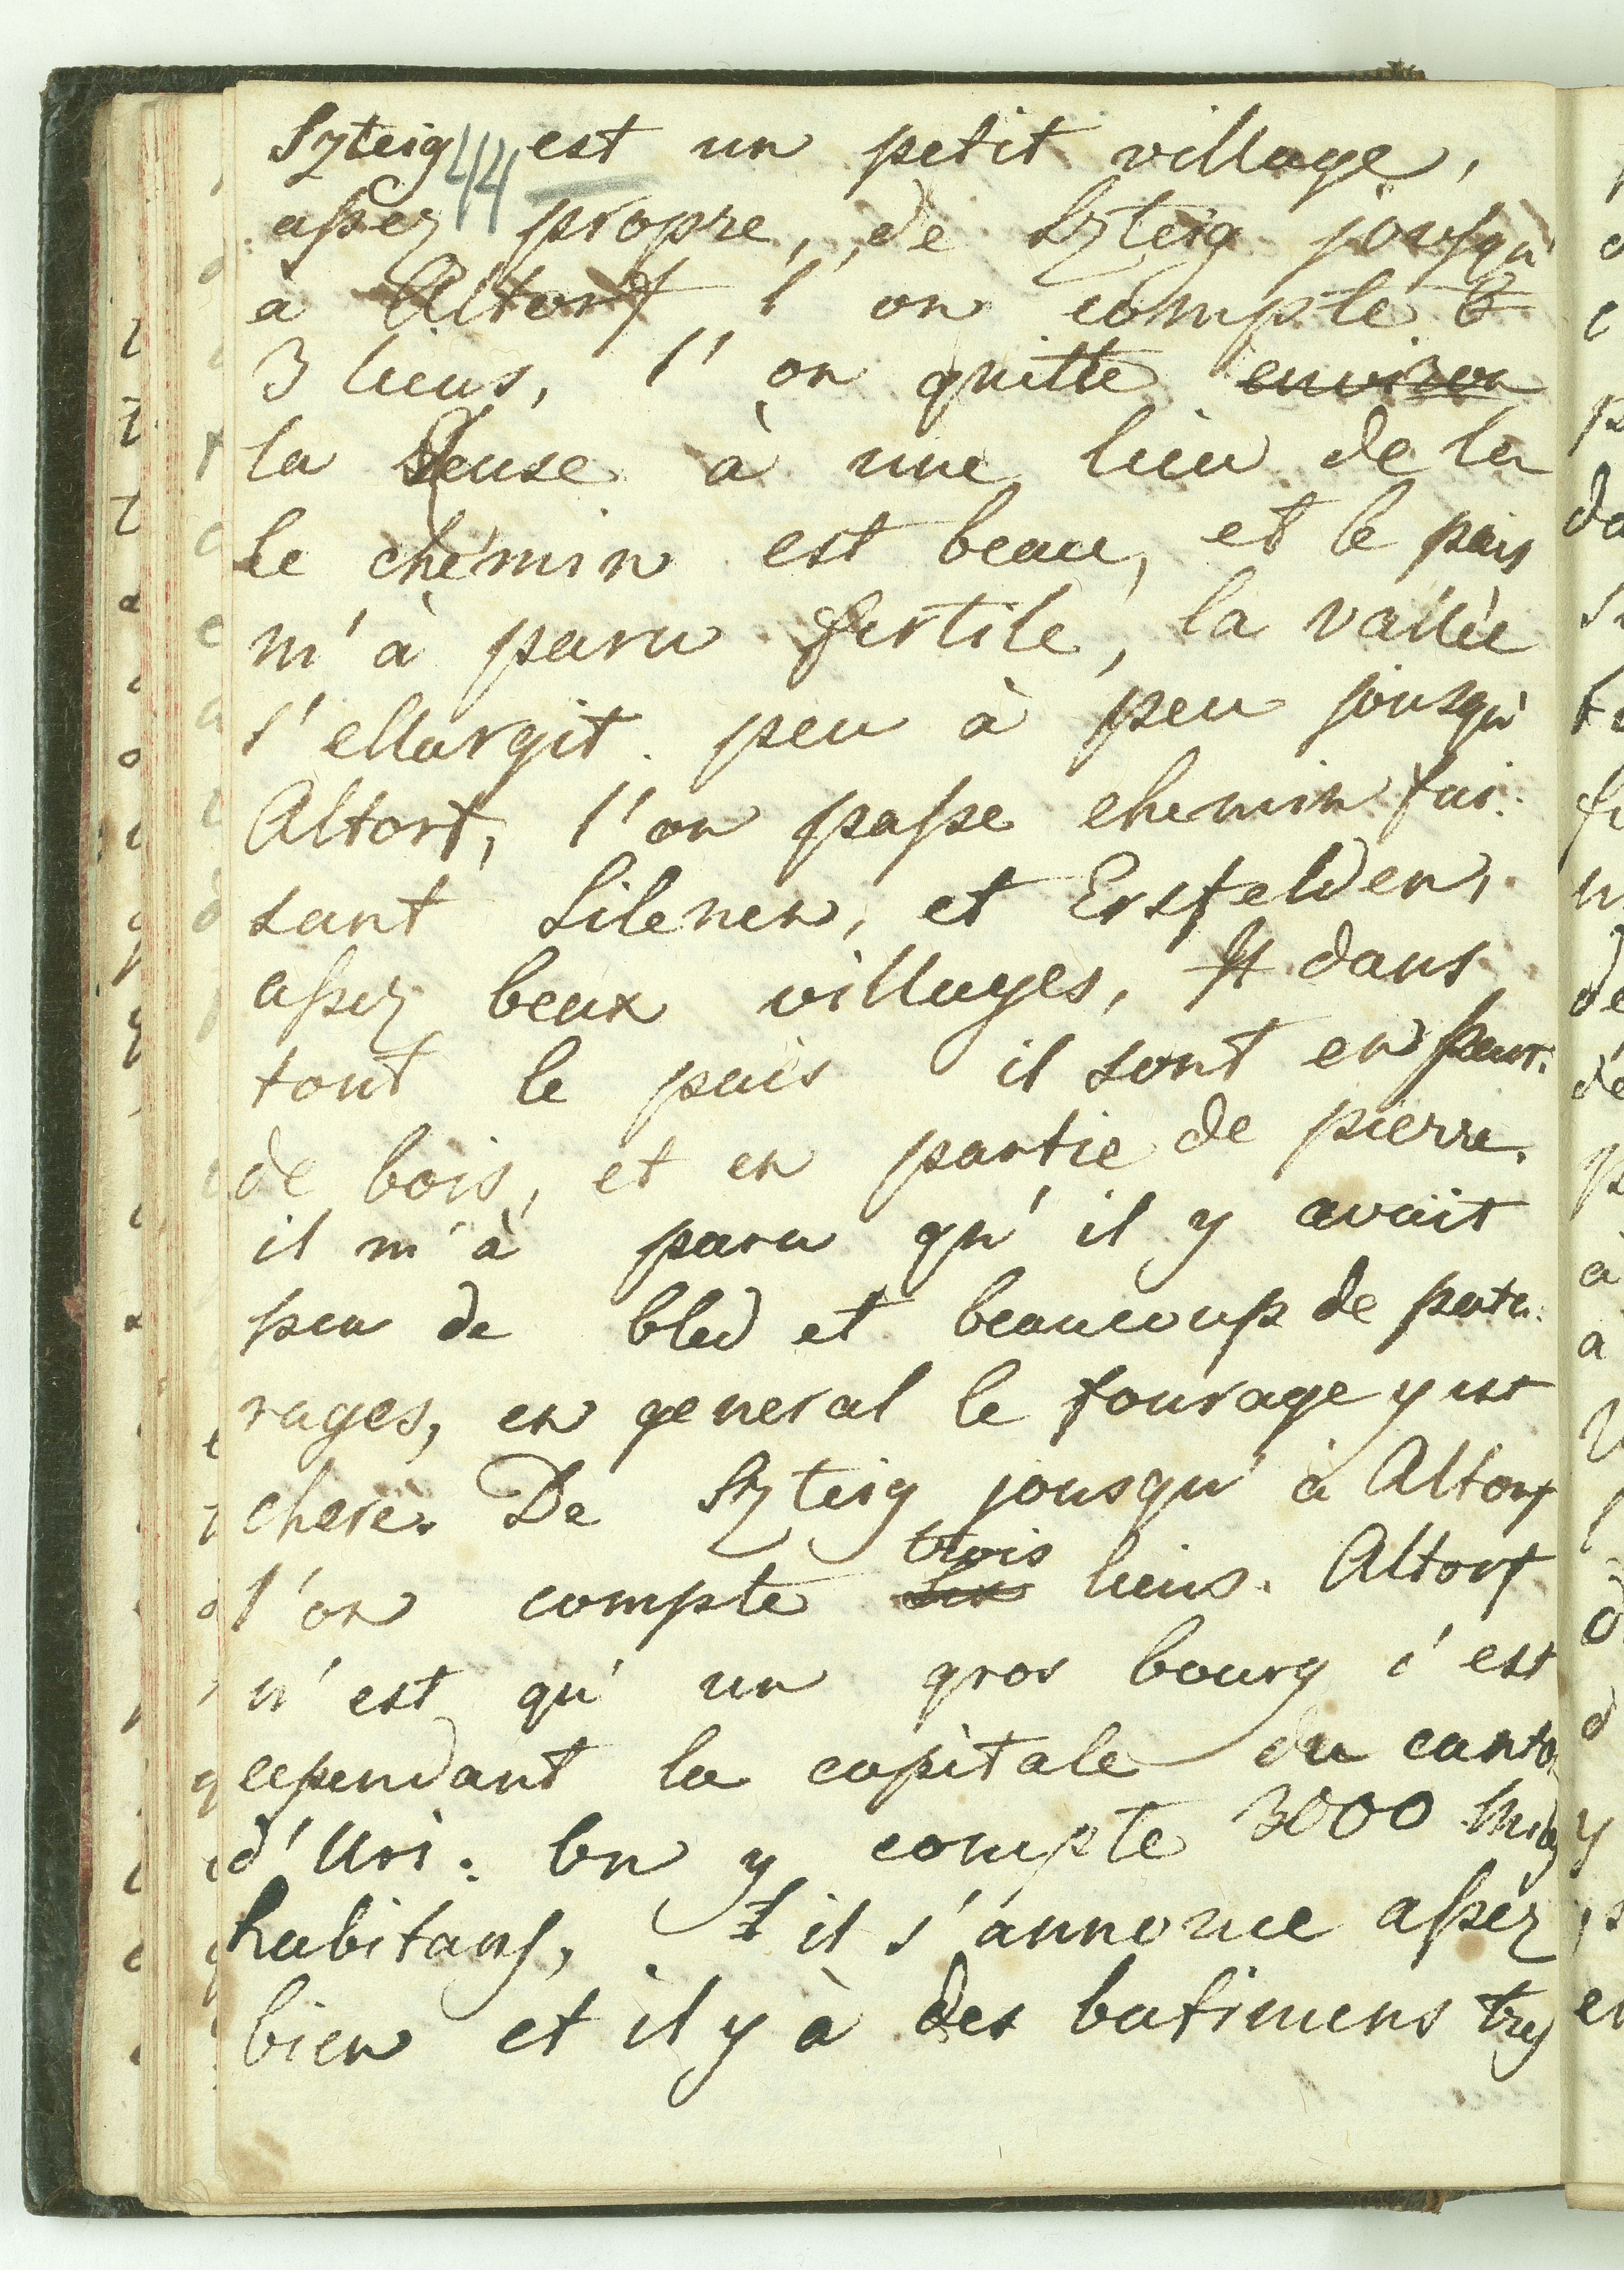 Szteig 44 est un petit village,
assez propre, de Szteig jousqu'
à Altorf l'on compte 6
3 lieus, l'on quitte environ
la Reuse à une lieu de la
le chémin est beau, et le païs
m'à paru fertile, la vallée
s'ellargit peu à peu jousqu'
Altorf, l'on passe chemin fai:
sant Silenen, et Erstfelden,
assez beux villages, dans
tout le païs il sont en part:
de bois, et en partie de pierre.
il m'à paru qu'il y avait
peu de bled et beaucoup de patu:
rages, en general le fourage y est
chere. De Szteig jousqu'à Altorf
trois
l'on compte six lieus. Altorf
n'est qu'un gros bourg c'est
cependant la capitale du canton
d'Uri. On y compte 3000
habitans, il s'annonce assez
bien et il y à des batimens trés